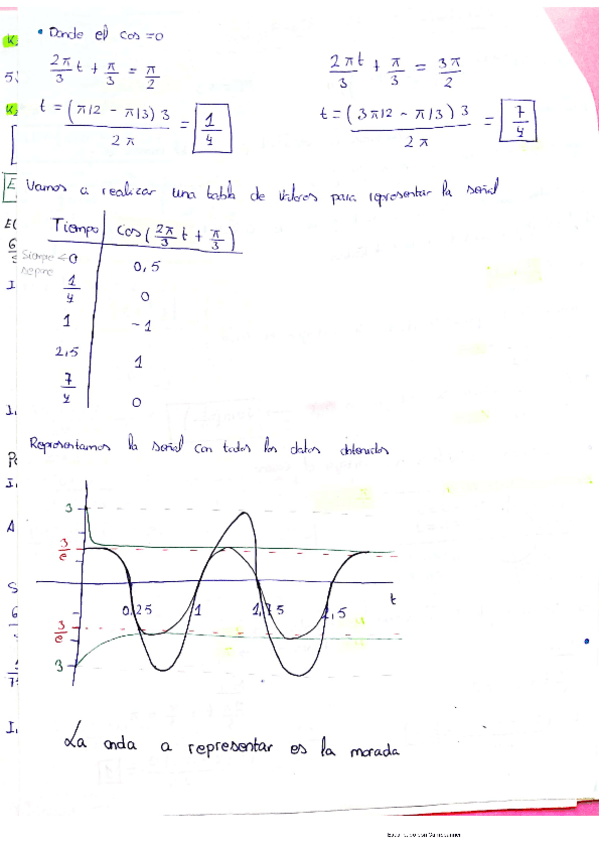 • Donde el cos = 0
2π/3 t + π/3 = π/2
2πt/3 + π/3 = 3π/2
t = (π/2 - π/3) 3 / 2π = 1/4
t = (3π/2 - π/3) 3 / 2π = 7/4
Vamos a realizar una tabla de valores para representar la señal
Tiempo cos(2π/3 t + π/3)
Siempre se pone ← 0 0,5
1/4 0
1 -1
2,5 1
7/4 0
Representamos la señal con todos los datos obtenidos
3
3/e
0,25 1 1,75 2,5 t
3/e
3
La onda a representar es la morada